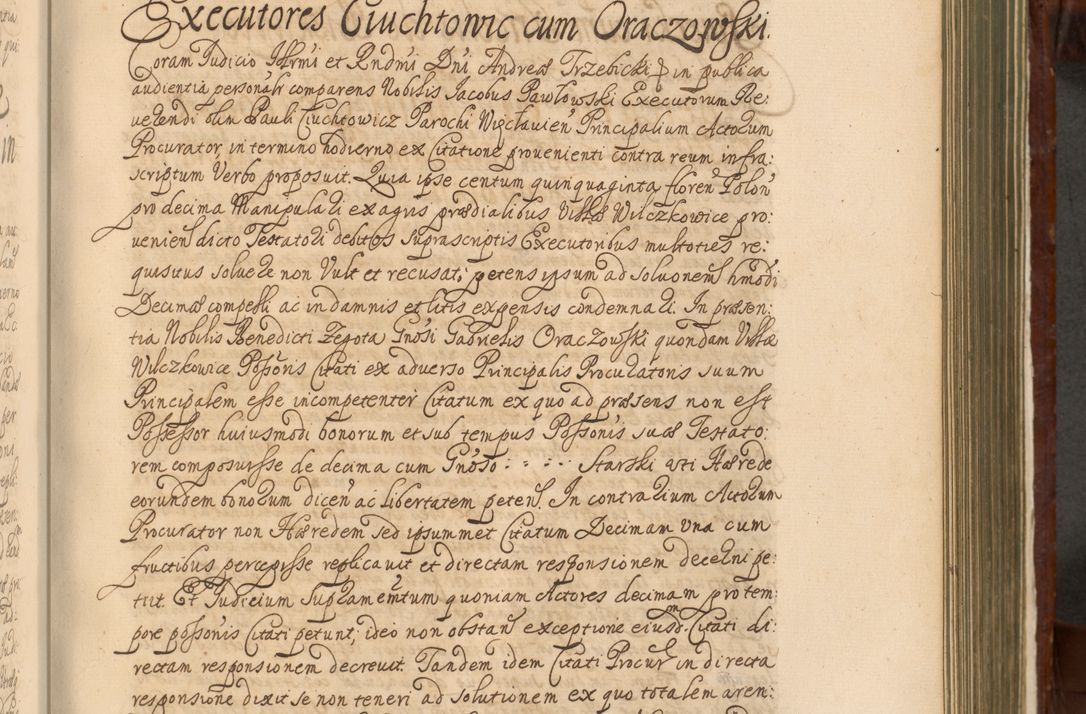 Executores Ciuchtowic cum Oraczowski.
Coram Judicio Illrmi et Rndmi Dni Andreæ Trzebicki in publica
audientia personalr comparens Nobilis Jacobus Pawłowski Executorum Re:
verendi olim Pauli Ciuchtowicz Parochi Więcłavien Principalium Actorum
Procurator, in termino hodierno ex Citatione provenienti contra reum infra
scriptum Verbo proposuit. Quia ipse centum quinquaginta floren Polon
pro decima Manipulari ex agris prædialibus Villæ Wilczkowice pro:
venien dicto Testatori debitos suprascriptis Executoribus multoties re:
quisitus solvere non Vult et recusat; petens ipsum ad solutionem hmodi
Decimæ compelli ac in damnis et litis expensis condemnari. In præsen:
tia Nobilis Benedicti Zegota Gnosi Gabrielis Oraczowski quondam Villæ
Wilczkowice Possoris Citati ex adverso Principalis Procuratoris suum
Principalem esse incompetenter Citatum ex quo ad præsens non est
Possessor huiusmodi bonorum et sub tempus Possonis suæ Testato:
rem composuisse de decima cum Gnoso : : : : Starski uti Hærede
eorundem bonorum dicen ac libertatem peten. In contrarium Actorum
Procurator non Hæredem sed ipsummet Citatum Decimam una cum
fructibus percepisse replicavit et directam responsionem decerni pe:
tiit. Et Judicium Supramentum quoniam Actores decimam pro tem:
pore possonis Citati petunt, ideo non obstan exceptione eiusdm Citati di:
rectam responsionem decrevit. Tandem idem Citati Procur in directa
responsione dixit se non teneri ad solutionem ex quo totalem aren: